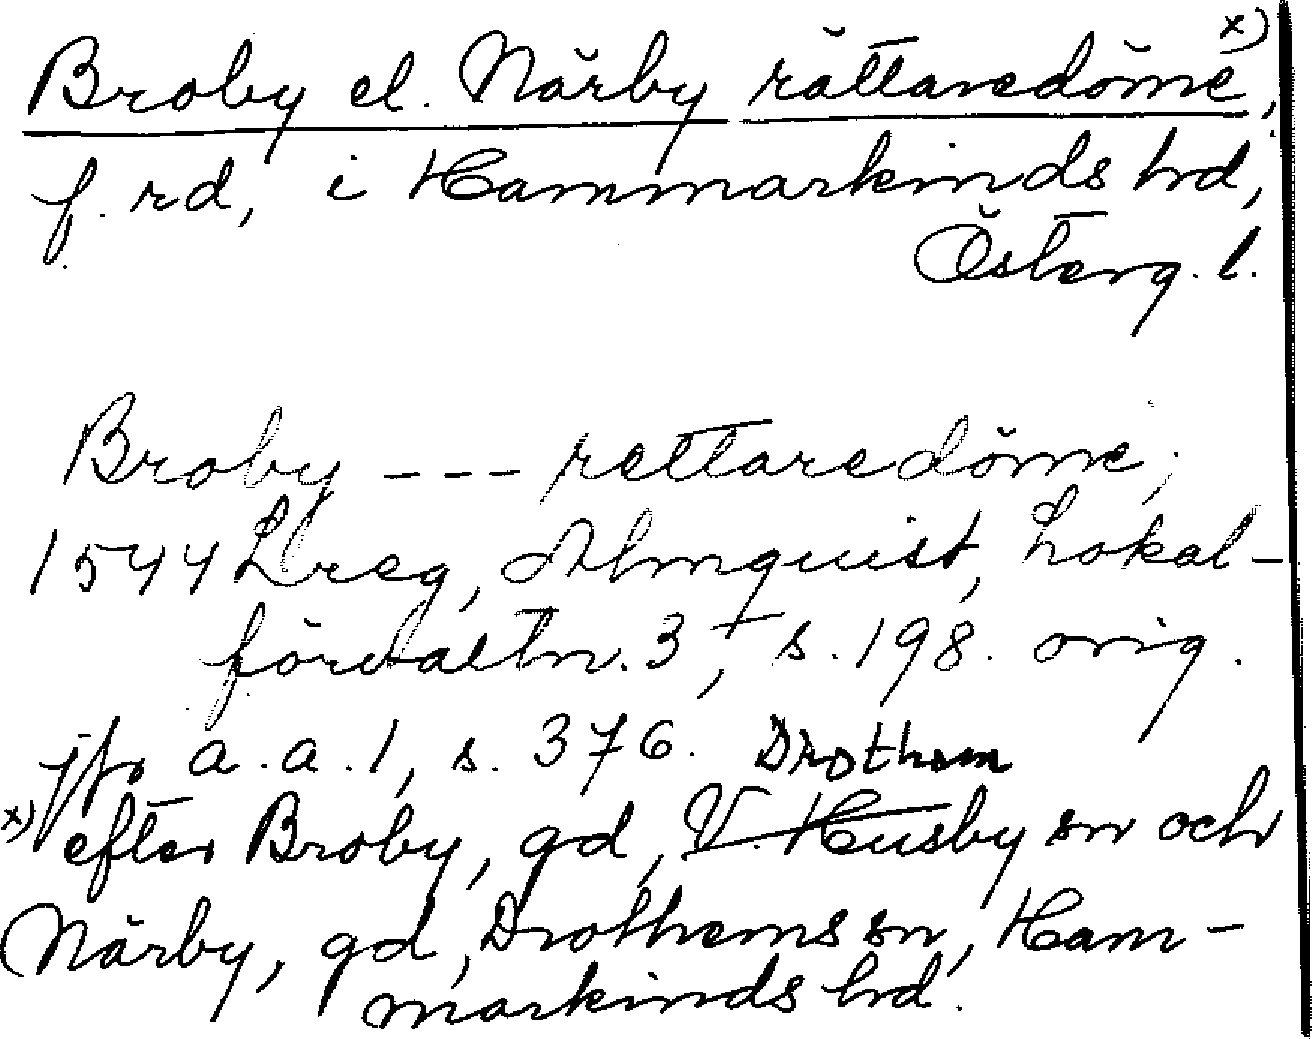 Broby el. Närby rättaredöme x),
f. rd, i Hammarkinds hd,
Österg. l.
Broby --- rettaredöme;
1544 Lreg, Almquist, Lokal-
förvaltn. 3, s. 198. orig.
jfr a.a. 1, s. 376. Drothem
x) efter Broby, gd, V. Husby sn och
Närby, gd, Drothems sn, Ham-
markinds hd.